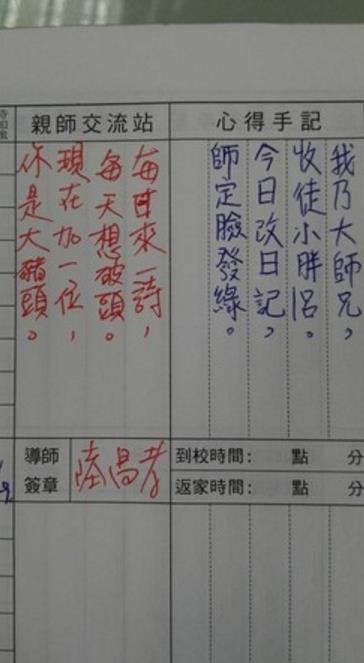 心得手記
我乃大師兄，
收徒小胖呂。
今日改日記，
師定臉發綠。
親師交流站
每日來一詩，
每天想破頭。
現在加一位，
你是大豬頭。
到校時間： 點 分
返家時間： 點 分
導師
簽章